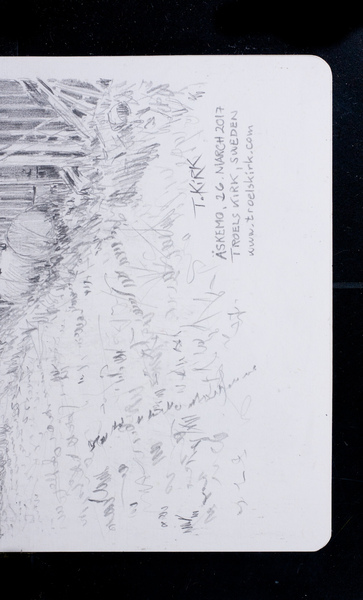 T. KIRK
ÄSKEMO, 26. MARCH 2017
TROELS KIRK SWEDEN
www.troelskirk.com